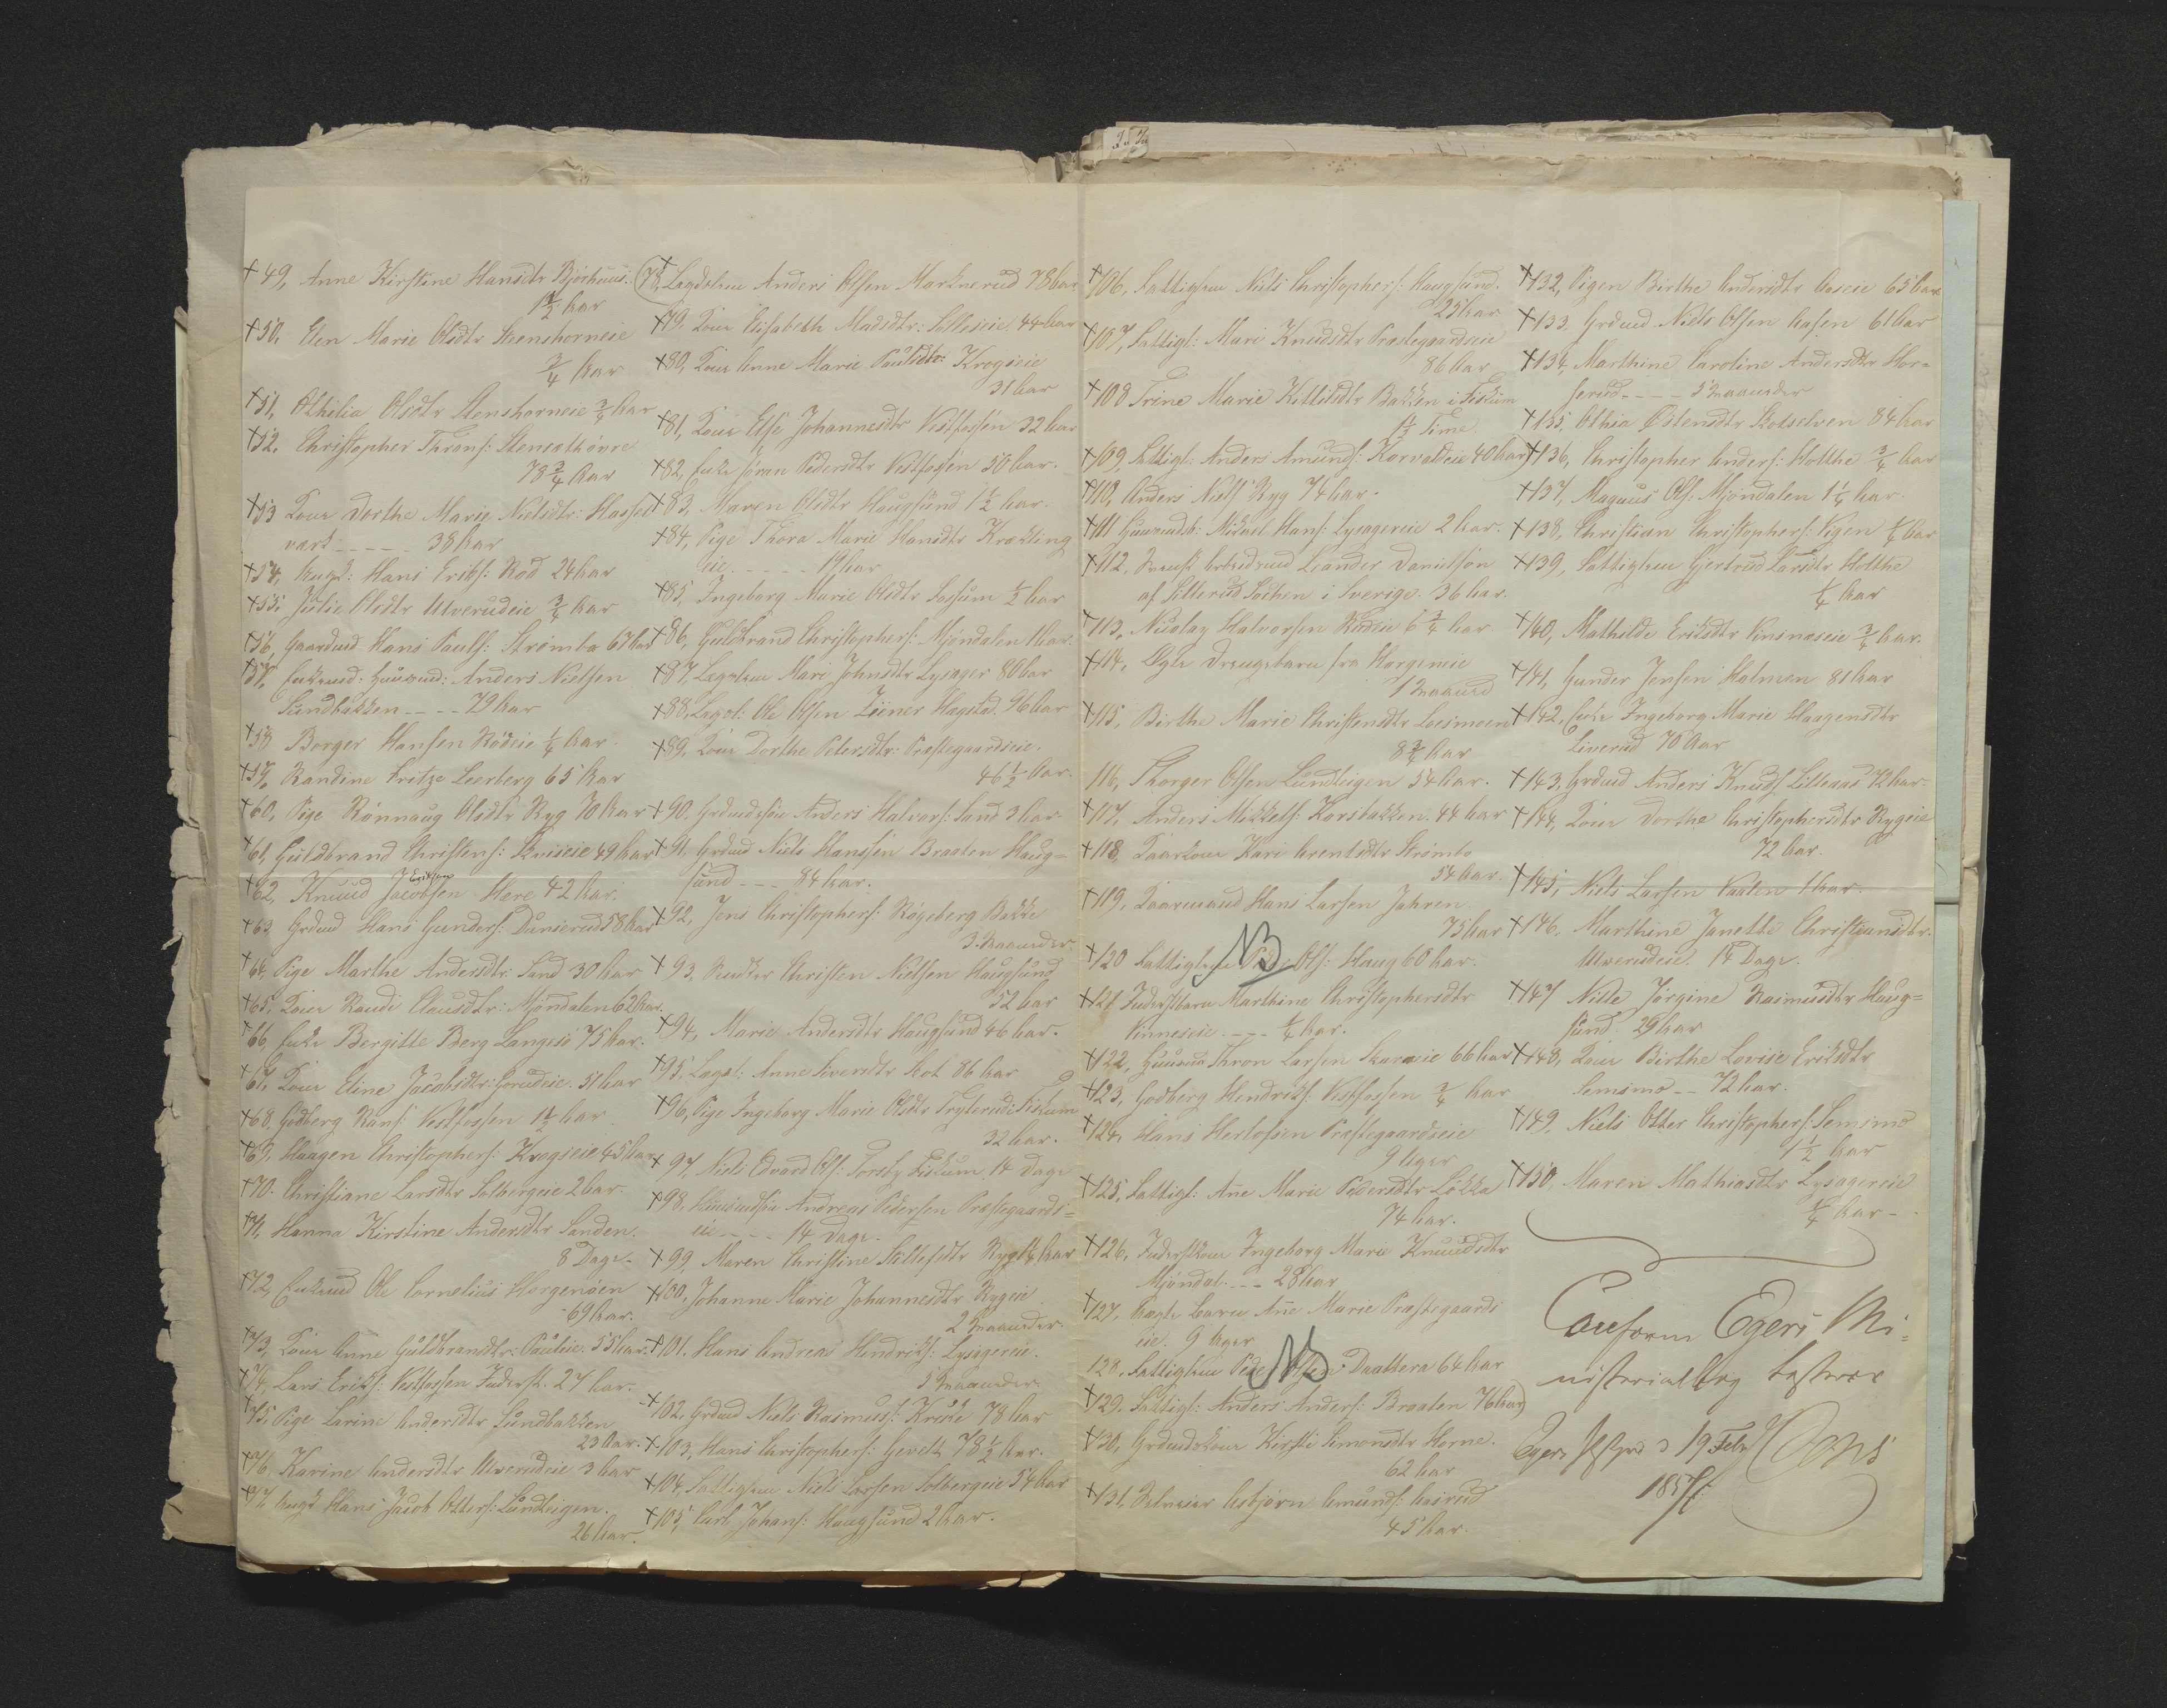 ✝ 49, Anne Kirstine Hansdtr Bjørhuus:
1 1/2 Aar
✝ 50, Elen Marie Olsdtr Steenshorneie
3/4 Aar
✝ 51, Othilia Olsdtr Stenshorneie 3/4 Aar
✝ 52, Christopher Throns:
78 3/4 Aar
✝ 53 Kone Dorthe Marie Nielsdtr: Hassel
værk - - - - 38 Aar
✝ 54, Hans Eriks: Rød 24 Aar
✝ 55, Julie Olsdtr Ulverudeie 3/4 Aar
✝ 56, Gaardmd Hans Pauls: Strømbo 67 Aar
✝ 57, Enkemd: Huusmd: Anders Nielsen
Sundbakken - - - 79 Aar
✝ 58 Borger Hansen Rødeie 1/4 Aar.
✝ 59, Randine Fritze Leerberg 65 Aar
✝ 60, Pige Rønnaug Olsdtr Ryg 70 Aar
✝ 61, Guldbrand Christens: 49 Aar
Eriksen
✝ 62, Knuud Jacobsen Hære 42 Aar.
✝ 63 Grdmd Hans Gunders: Dunserud 58 Aar
✝ 64, Pige Marthe Andersdtr: Sand 30 Aar
✝ 65, Kone Randi Clausdtr: Mjøndalen 62 Aar.
✝ 66, Enke Bergitte Berg Langesø 75 Aar.
✝ 67, Kone Eline Jacobsdtr: 51 Aar
✝ 68, Gudberg Hans: Vestfossen 1 1/2 Aar
✝ 69, Haagen Christophers: Krogseie 45 Aar
✝ 70. Christiane Larsdtr Solbergeie 2 Aar.
✝ 71, Hanna Kirstine Andersdtr Sanden.
8 Dage.
✝ 72, Enkemd Ole Cornelius Horgenøen
69 Aar.
✝ 73, Kone Anne Guldbrandsdtr: 55 Aar.
✝ 74, Lars Eriks: Vestfossen Inderst. 27 Aar.
✝ 75, Pige Larine Andersdtr Sundbakken
23 Aar.
✝ 76, Karine Andersdtr Ulverudeie 3 Aar
✝ 77, Hans Jacob Otters: Lundteigen.
26 Aar.
✝ 78, Lægdslem Anders Olsen Marknerud 78 Aar
✝ 79. Kone Elisabeth Madsdtr: 44 Aar
✝ 80, Kone Anne Marie Paulsdtr: Krogseie
31 Aar
✝ 81, Kone Else Johannesdtr Vestfossen 32 Aar
✝ 82, Enke Søren Pedersdtr Vestfossen 50 Aar.
✝ 83, Maren Olsdtr Haugsund 1 1/2 Aar.
✝ 84, Pige Thora Marie Hansdtr Krækling
eie - - - - - 19 Aar
✝ 85, Ingeborg Marie Olsdtr Fossum 1/2 Aar
✝ 86, Guldbrand Christophers: Mjøndalen 1 Aar.
✝ 87, Lægslem Mari Johnsdtr Lysager 80 Aar
✝ 88, Lægsl: Ole Olsen Ziener Hagstad. 96 Aar
✝ 89, Kone Dorthe Petersdtr: Præstegaardseie.
46 1/2 Aar.
✝ 90. Grdmdssøn Anders Halvors: Sand 3 Aar
✝ 91, Grdmd Niels Hanssen Braaten Haug-
sund - - - 84 Aar.
✝ 92, Jens Christophers: Røgeberg Bakke
3 Maaneder.
✝ 93, Christen Nielsen Haugsund
52 Aar
✝ 94, Marie Andersdtr Haugsund 46 Aar.
✝ 95, Lægsl: Anne Iversdtr 86 Aar
✝ 96, Pige Ingeborg Marie Olsdtr Fryterud i Fiskum
32 Aar.
✝ 97, Niels Edvard Ols: Torsby Fiskum 14 Dage
✝ 98, Huusmdssøn Andreas Pedersen Præstegaards-
eie - - - - 14 Dage.
✝ 99, Maren Christine
✝ 100, Johanne Marie Johannesdtr Rygeie
2 Maaneder.
✝ 101. Hans Andreas Hendriks: Lysagereie.
5 Maaneder
✝ 102, Grdmd Niels Rasmuss: 78 Aar
✝ 103, Hans Christophers: 78 1/2 Aar.
✝ 104, Fattiglem Niels Larsen Solbergeie 54 Aar
✝ 105, Carl Johans: Haugsund 2 Aar.
✝ 106, Fattiglem Niels Christophers: Haugsund.
25 Aar
✝ 107, Fattigl: Mari Knudsdtr Præstegaardseie
86 Aar
✝ 108 Trine Marie Kittilsdtr Bakken i Fiskum
1 1/2 Time.
✝ 109, Fattigl: Anders Amunds: Korvaldeie 40 Aar
✝ 110, Anders Niels Ryg 74 Aar.
✝ 111 Huusmds: Mikael Hans: Lysagereie 2 Aar.
✝ 112, Svensk Arbeidsmd Leander Danielsøn
af Sillerud Sochen i Sverige. 36 Aar.
✝ 113, Nicolay Halvorsen 6 3/4 Aar
✝ 114, Ægte Drengebarn fra Horgeneie
1 Maaned
✝ 115, Birthe Marie Christensdtr Loesmoen
8 3/4 Aar
116, Thorger Olsen Lundteigen 54 Aar.
✝ 117, Anders Mikkels: Korsbakken. 44 Aar
✝ 118, Kaarkone Kari Arentsdtr Strømbo
54 Aar.
✝ 119, Kaarmand Hans Larsen Jahren.
75 Aar
✝ 120 Fattiglem NB Ols: Haug 60 Aar.
✝ 121 Inderstbarn Marthine Christophersdtr
Vinneseie - - - 1/4 Aar.
✝ 122, Huusmd Thron Larsen 66 Aar
✝ 123, Godberg Hendriks: Vestfossen 3/4 Aar
✝ 124, Hans Herlofsen Præstegaardseie
9 Uger
✝ 125, Fattigl: Ane Marie Pedersdtr Løkka
74 Aar.
✝ 126, Inderstkone Ingeborg Marie Knuudsdtr
Mjøndal. - - - 28 Aar
✝ 127, Uægte Barn Ane Marie Præstegaards
eie. 9 Uger
128, Fattiglem Peder NB Daaltera 64 Aar
✝ 129, Fattigl: Anders Anders: Braaten 76 Aar
✝ 130, Grdmdskone Kirsti Simonsdtr Horne.
62 Aar
✝ 131, Selveier Asbjørn Amunds: Aasrud
45 Aar.
✝ 132, Pigen Birthe Andersdtr Aaseie 65 Aar
✝ 133. Grdmd Niels Olsen Aasen 61 Aar
✝ 134, Marthine Caroline Andersdtr Hor-
gerud - - - - 5 Maaneder
✝ 135, Othia Østensdtr Skotselven 84 Aar
✝ 136, Christopher Anders: Holthe 3/4 Aar
✝ 137, Magnus Ols: Mjøndalen 1 1/4 Aar.
✝ 138, Christian Christophers: Vigen 1/4 Aar
✝ 139, Fattiglem Gertrud Larsdtr Holthe
1/4 Aar
✝ 140, Mathilde Eriksdtr Vinsnæseie 3/4 Aar.
✝ 141, Gunder Jensen Holmen 81 Aar
✝ 142, Enke Ingeborg Marie Haagensdtr
Liverud 70 Aar
✝ 143, Grdmd Anders Knuds: Lilleaas 72 Aar.
✝ 144, Kone Dorthe Christophersdtr Rygeie
72 Aar.
✝ 145, Niels Larsen Aar.
✝ 146, Marthine Janette Christiansdtr.
Ulverudeie. 14 Dage.
✝ 147 Nille Jørgine Rasmusdtr Haug-
sund. 29 Aar
✝ 148, Kone Birthe Lovise Eriksdtr
Semsmo - - 72 Aar.
✝ 149, Niels Otter Christophers: Semsmo
1 1/2 Aar
✝ 150, Maren Mathiasdtr Lysagereie
1/4 Aar -
Conform Egers Mi-
nisterialbog testerer
Egers Pstgrd d 19 Febr
1857